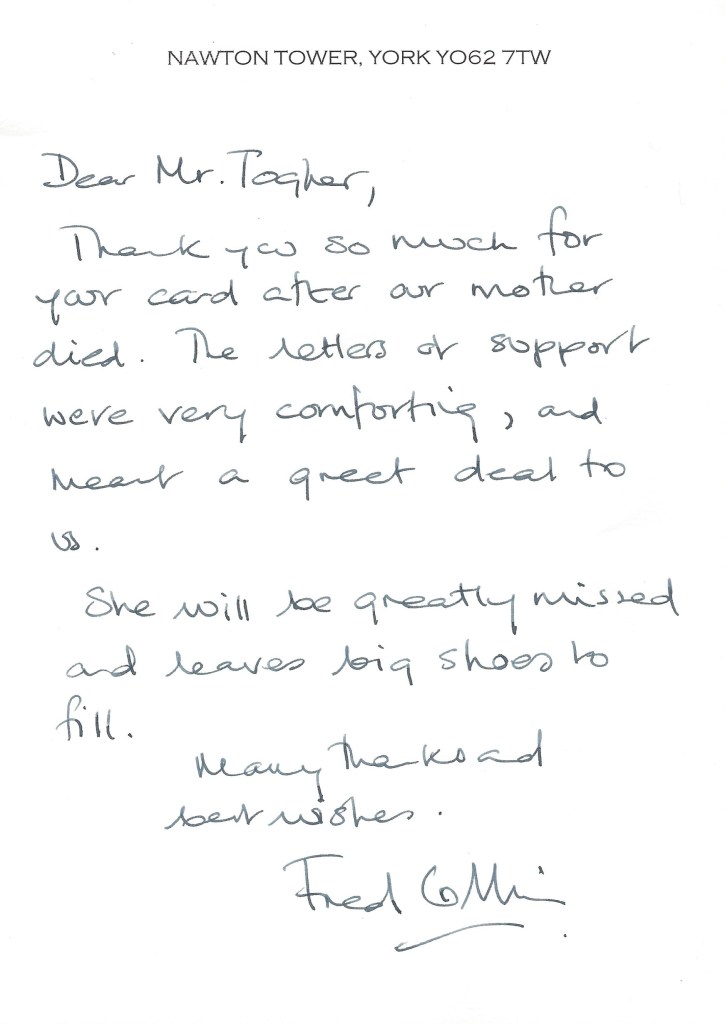 NAWTON TOWER, YORK YO62 7TW
Dear Mr. Togher,
Thank you so much for
your card after our mother
died. The letters of support
were very comforting, and
meant a great deal to
us.
She will be greatly missed
and leaves big shoes to
fill.
Many thanks and
best wishes.
Fred